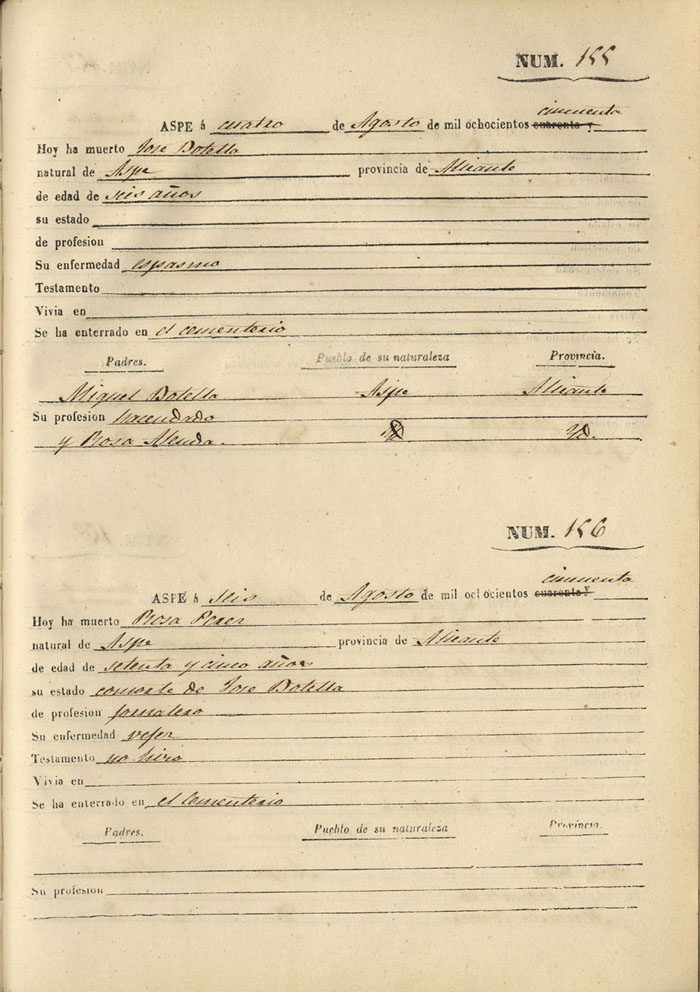 NUM. 155
cincuenta
ASPE á cuatro de Agosto de mil ochocientos cuarenta y
Hoy ha muerto Jose Botella
natural de Aspe provincia de Alicante
de edad de seis años
su estado
de profesion
Su enfermedad espasmo
Testamento
Vivia en
Se ha enterrado en el cementerio
Padres. Pueblo de su naturaleza Provincia.
Miguel Botella Aspe Alicante
Su profesion hacendado
y Rosa Yd. Yd.
NUM. 156
cincuenta
ASPE á seis de Agosto de mil ochocientos cuarenta y
Hoy ha muerto Rosa Perez
natural de Aspe provincia de Alicante
de edad de setenta y cinco años
su estado consorte de Jose Botella
de profesion jornalero
Su enfermedad vejez
Testamento no hizo
Vivia en
Se ha enterrado en el cementerio
Padres. Pueblo de su naturaleza Provincia.
Su profesion